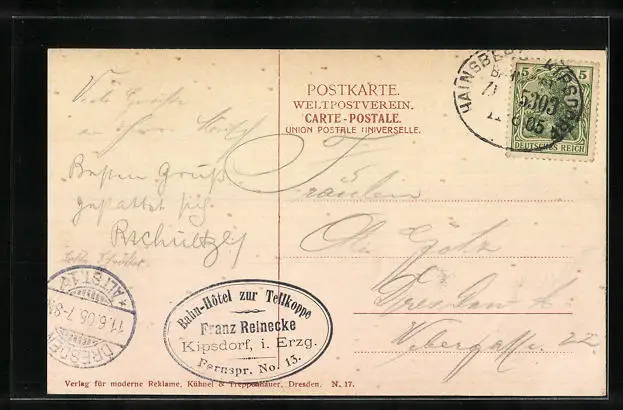 Viele Grüße
Besten Gruß
gestattet sich
POSTKARTE.
WELTPOSTVEREIN.
CARTE-POSTALE.
UNION POSTALE UNIVERSELLE.
HAINSBERG KIPSDORF
5303
5 5
DEUTSCHES REICH
Fräulein
Dresden A.
Webergasse 22
DRESDEN ALTST.
11.6.05. 7-8
Bahn-Hôtel zur Tellkoppe
Franz Reinecke
Kipsdorf, i. Erzg.
Fernspr. No. 13.
Verlag für moderne Reklame, Kühnel & Treppenhauer, Dresden. N. 17.